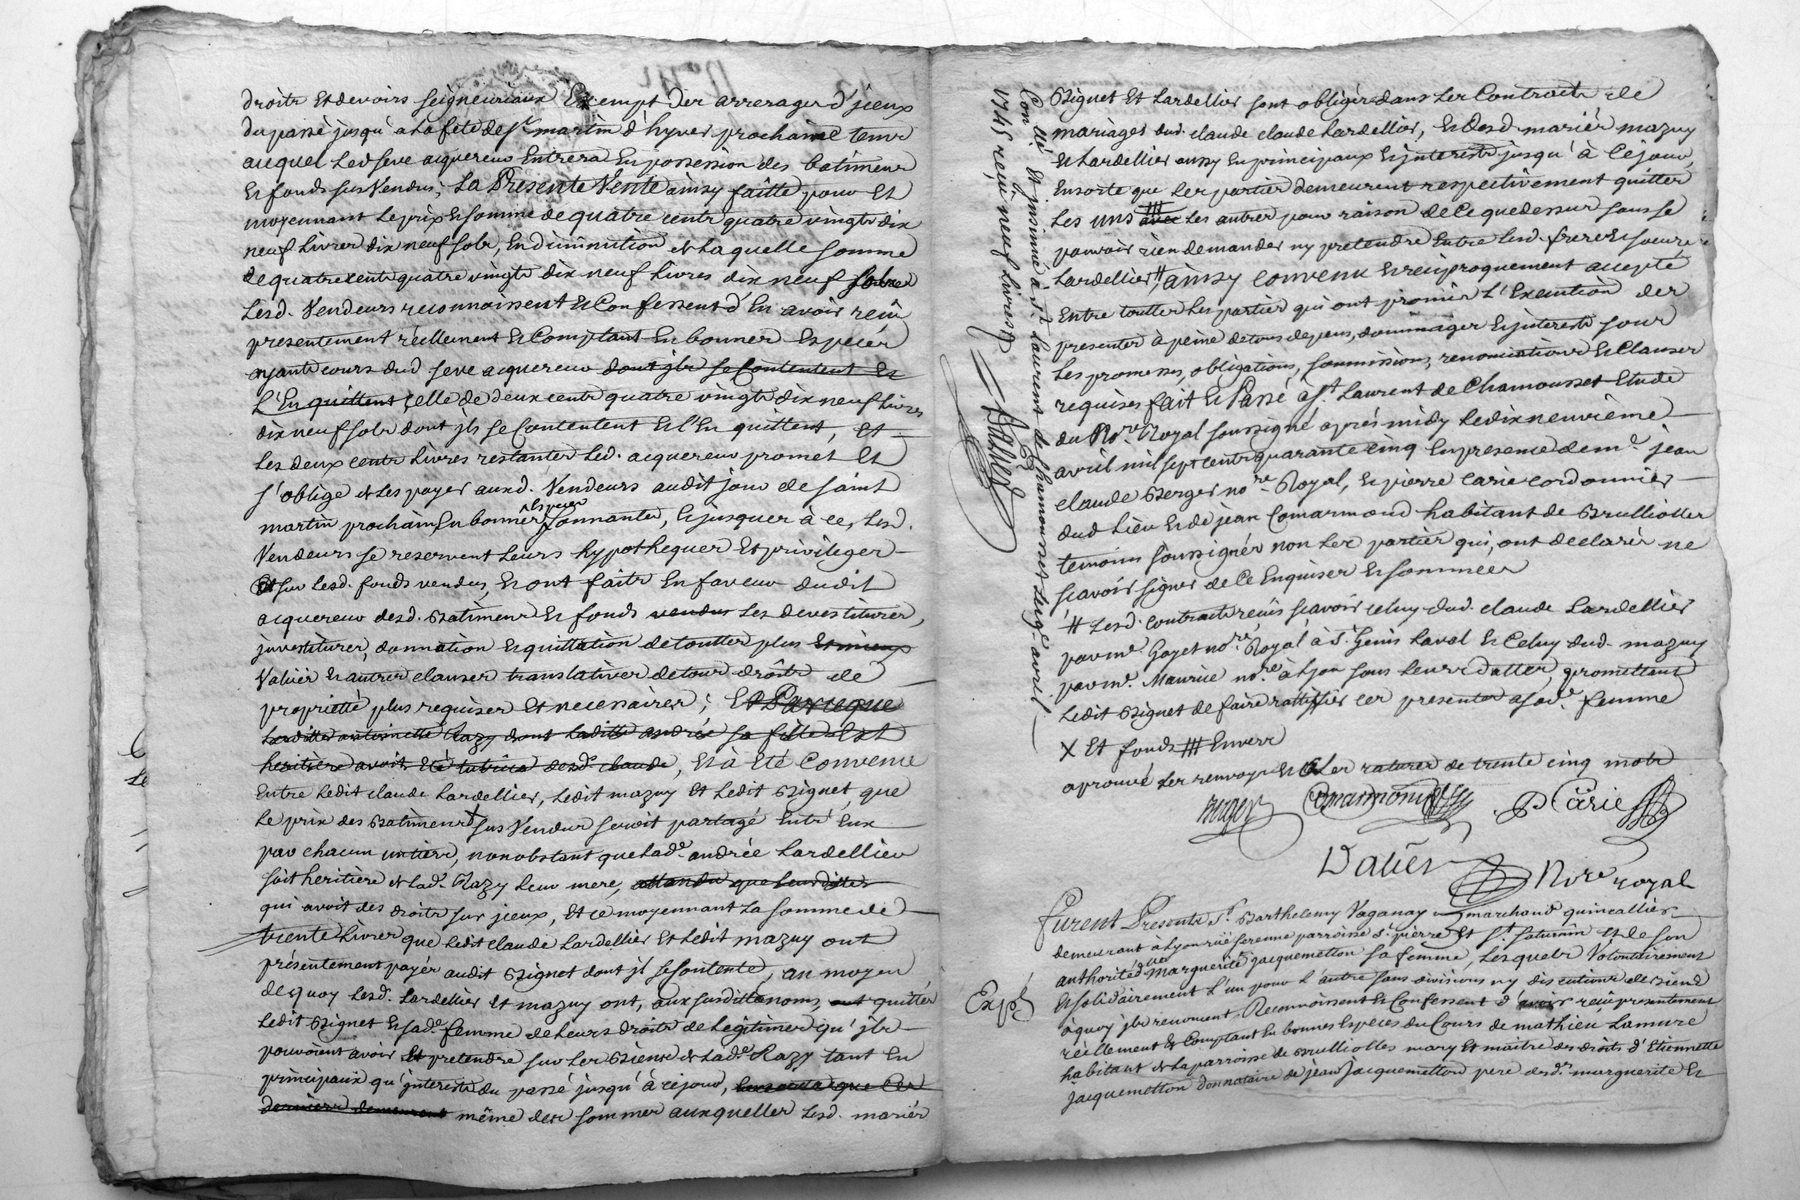 droits et devoirs seigneuriaux Exempt des arrerages d'jceux
du passé jusqu'a la fete de st martin d'hyver prochaine tems
auquel led. seve acquereur Entrera En possession des batimens
et fonds sus Vendus; La Presente Vente ainsy faitte pour et
moyennant le prix et somme de quatre cents quatre vingts dix
neuf livres dix neuf sols, En diminution de laquelle somme
de quatre cents quatre vingts dix neuf livres dix neuf sols
lesd. Vendeurs reconnoissent et Confessent d'En avoir reçu
presentement réellement et Comptant En bonnes Especes
ayants cours dud seve acquereur dont jls se Contentent et
l'En quittent celle de deux cents quatre vingts dix neuf livres
dix neuf sols dont jls se Contentent et l'En quittent, et
les deux cents livres restantes led. acquereur promet et
s'oblige de les payer auxd. Vendeurs audit jour de saint
martin prochain En bonnes Especes sonnantes, et jusques à ce, lesd.
Vendeurs se reservent leurs hypotheques et privileges
sur lesd. fonds vendus, et ont fait En faveur dudit
acquereur desd. Batimens et fonds vendus les devestitures,
jnvestitures, donnation et quittation de touttes plus et mieux
Values et autres clauses translatives de tous droits de
proprietté plus requises et necessaires; Et Parceque
laditte antoinette Razy dont laditte andrée sa fille Est
heritière avoit Eté tutrice desd. claude, Et à Eté Convenu
Entre ledit claude Lardellier, ledit mazuy et ledit Bignet, que
le prix des Batimens X sus Vendus seroit partagé Entr'Eux
par chacun un tiers, nonobstant que lad. andrée Lardellier
soit heritière de lad. Razy leur mere,
qui avoit des droits sur jceux, et ce moyennant la somme de
trente livres que ledit claude Lardellier et ledit mazuy ont
présentement payés audit Bignet dont jl se Contente, au moyen
de quoy lesd. Lardellier et mazuy ont, aux susdittes noms, quitté
ledit Bignet et sade femme de leurs droits de legitimes qu'jls
pouvoient avoir et pretendre sur les Biens de lade Razy tant En
principaux qu'jnterests du passé jusqu'à ce jour, Ensorte que les
derniers demeurent même des sommes auxquelles lesd. mariés
Bignet et Lardellier sont obligés dans les Contracts de
mariages dud. claude Lardellier, et desd. mariés mazuy
et Lardellier aussy En principaux et jnterests jusqu'à ce jour,
Ensorte que les parties demeurent respectivement quittes
les uns # avec les autres pour raison de ce que dessus sans se
pouvoir rien demander ny pretendre Entre lesd. frere et soeurs
Lardellier # ainsy convenu et reciproquement accepté
Entre touttes les parties qui ont promis l'Execution des
presentes à peine de tous depens, dommages et jnterests sous
les promesses, obligations, soumissions, renonciations et Clauses
requises fait et Passé à st. Laurent de Chamousset Etude
du Nore. Royal soussigné après midy le dix neuvième
avril mil sept cents quarante cinq En presence de me. jean
claude Berger nore. Royal, et pierre Carie cordonnier
dud lieu et de jean Comarmond habitant de Brulliolles
temoins soussignés non les parties qui, ont declarés ne
scavoir signer de ce Enquises et sommées
# lesd. contracts reçus scavoir celuy dud. claude Lardellier
par me. Goyet nore. Royal à st. Genis Laval et Celuy dud. mazuy
par me. Maurice nore. à Lyon sous leurs dattes, promettant
ledit Bignet de faire rattiffier ces presentes a sade. femme
X et fonds # Envers
aprouvé les renvoys et les ratures de trente cinq mots
Berger Comarmond P Carie
Dalles Nore royal
Con llé et jnsinué à st. Laurent de Chamousset le 19e avril
1745 reçu neuf livres
Dalles
Expé
Furent Presents sr. Barthelemy Vaganay marchand quincallier
demeurant a Lyon rüe ferenne parroisse st. pierre et st. saturnin et de son
authorité marguerite jacquemetton sa femme, lesquels Volontairement
et solidairement l'un pour l'autre sans divisions ny discutions de Biens
à quoy jls renoncent, Reconnoissent et Confessent d'avoir reçu presentement
réellement et Comptant En bonnes Especes du Cours de mathieu Lamure
habitant de la parroisse de Brulliolles mary et maitre des droits d'Etiennette
jacquemetton donnataire de jean jacquemetton pere desd. marguerite et